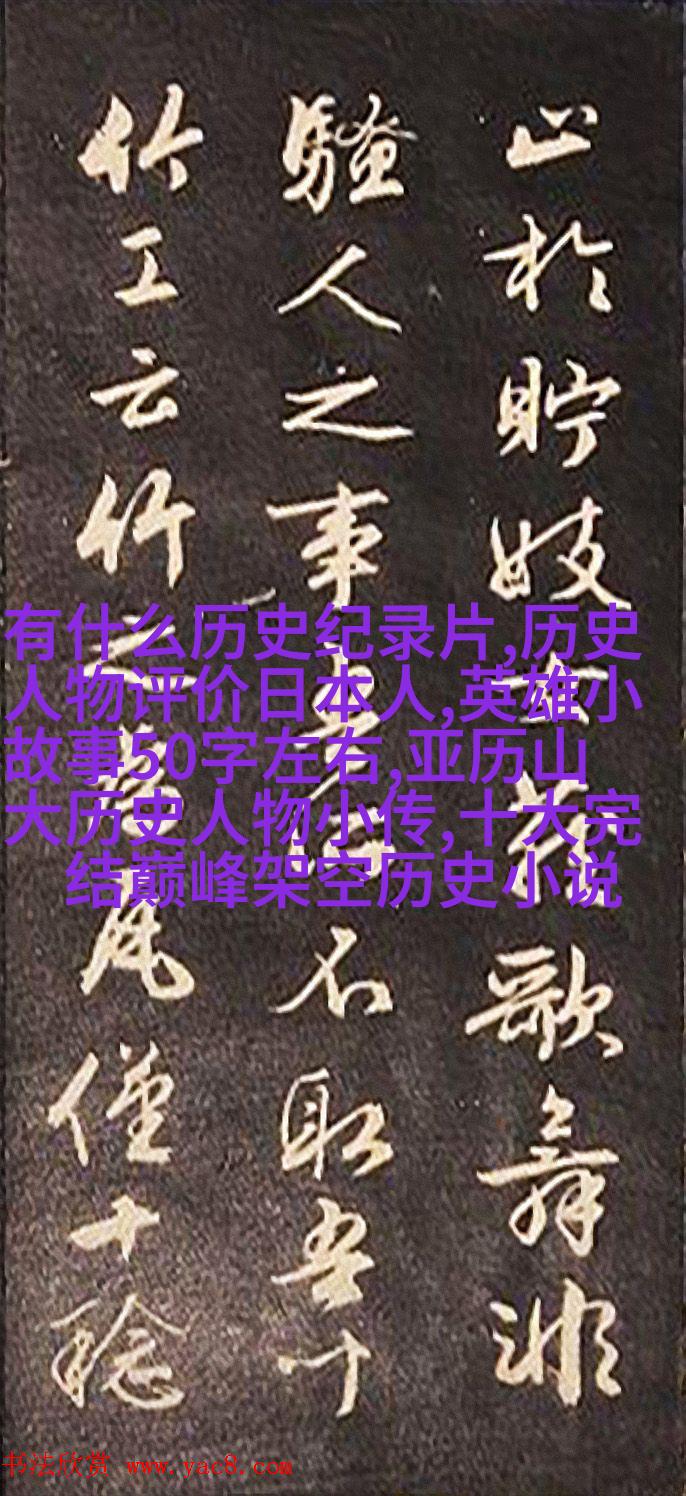 止於貯妓女藏歌舞非
騷人之事吾所不取吾聞
竹工云竹之為瓦僅十稔
有什么历史纪录片,历史
人物评价日本人,英雄小
故事50字左右,亚历山
大历史人物小传,十大完
结巅峰架空历史小说
书法欣赏 www.yac8.com